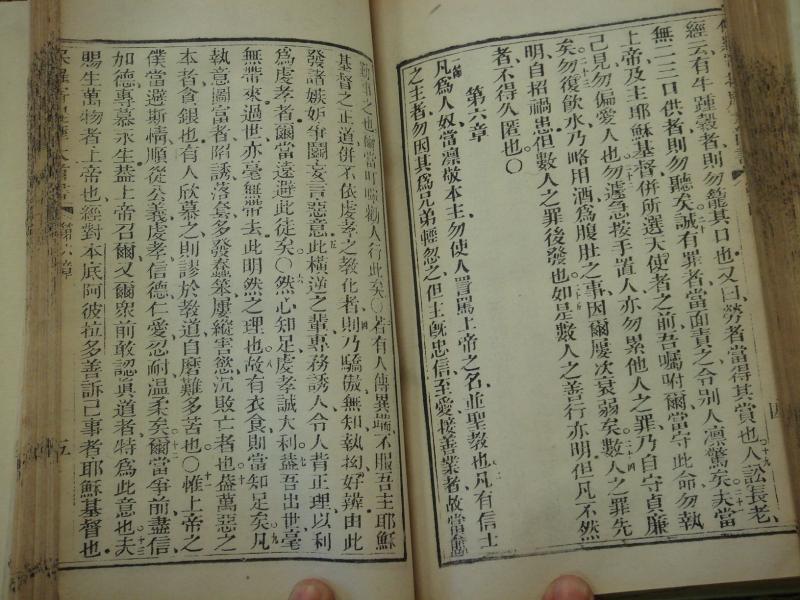 經云有牛踵穀者則勿籠其口也又曰勞者當得其賞也人訟長老
無二三口供者則勿聽矣誠有罪者當面責之令別人凛驚矣夫當
上帝及主耶穌基督併所選天使者之前吾嘱咐爾當守此命勿執
己見勿偏愛人也勿遽急按手置人亦勿累他人之罪乃自守貞廉
矣勿復飲水乃略用酒爲腹肚之事因爾屢次衰弱矣數人之罪先
明自招禍患但數人之罪後發也如是數人之善行亦明但凡不然
者不得久匿也〇
第六章
凡爲人奴當凛敬本主勿使人詈罵上帝之名並聖教也凡有信士
之主者勿因其爲兄弟輕忽之但主旣忠信至愛接善業者故當
人行此矣〇若有人傳異端不服吾主耶穌
基督之正道併不依虔孝之教化者則乃驕傲無知執拗好辨由此
發諸嫉妒爭鬬妄言惡意此橫逆之輩專務誘人令人背正理以利
爲虔孝者爾當遠避此徒矣〇然心知足虔孝誠大利葢吾出世毫
無帶來過世亦毫無帶去此明然之理也故有衣食則當知足矣凡
執意圖富者陷誘落套多發蠢笨屢縱害慾沉敗亡者也葢萬惡之
本者貪銀也有人欣慕之則謬於教道自磨難多苦也〇惟上帝之
僕當避斯情順從公義虔孝信德仁愛忍耐温柔矣爾當爭前盡信
加德專慕永生葢上帝召爾又爾衆前敢認眞道者特爲此意也夫
賜生萬物者上帝也經對本底阿彼拉多善訴己事者耶穌基督也
五